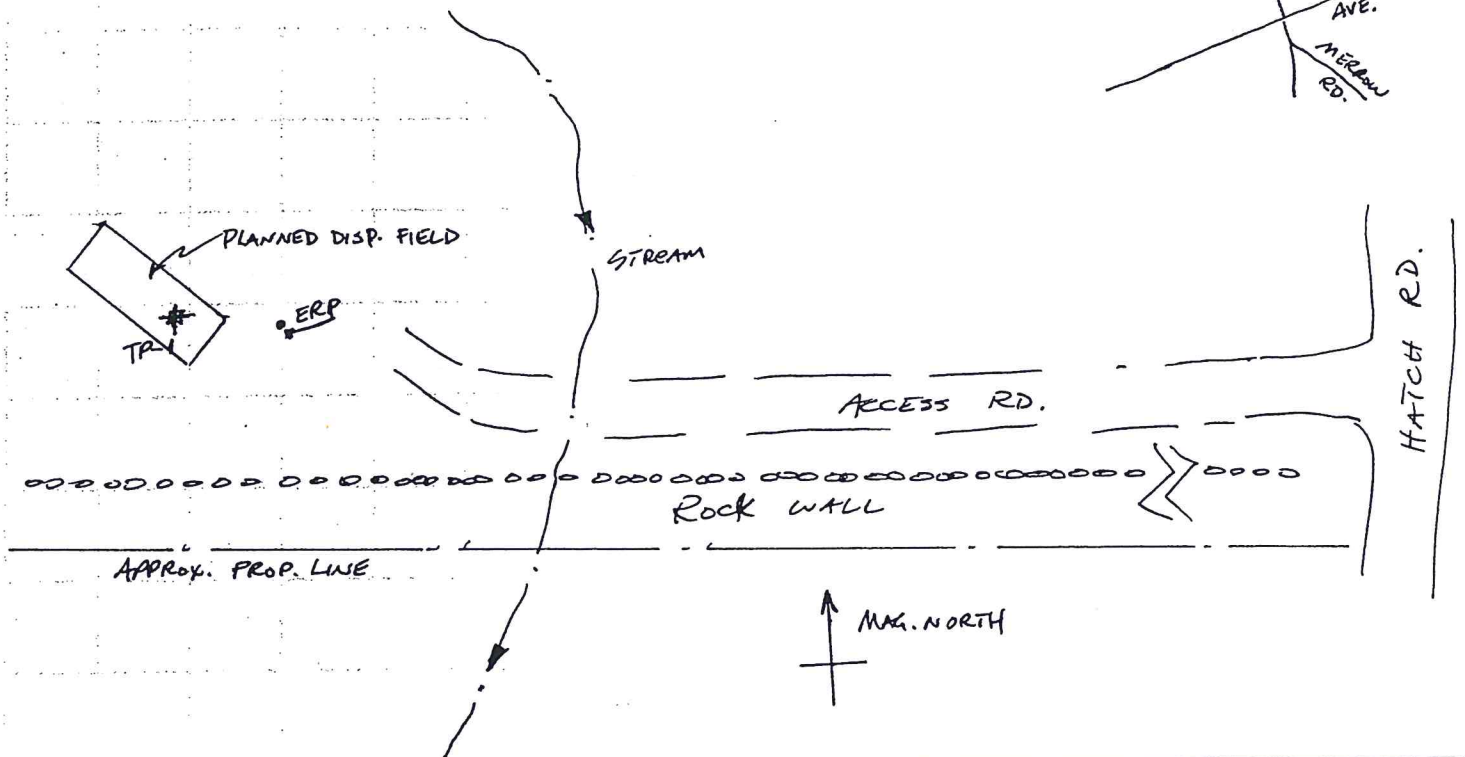 AVE.
MERROW
RD.
PLANNED DISP. FIELD
STREAM
ERP
TP-1
HATCH RD.
ACCESS RD.
ROCK WALL
APPROX. PROP. LINE
MAG. NORTH